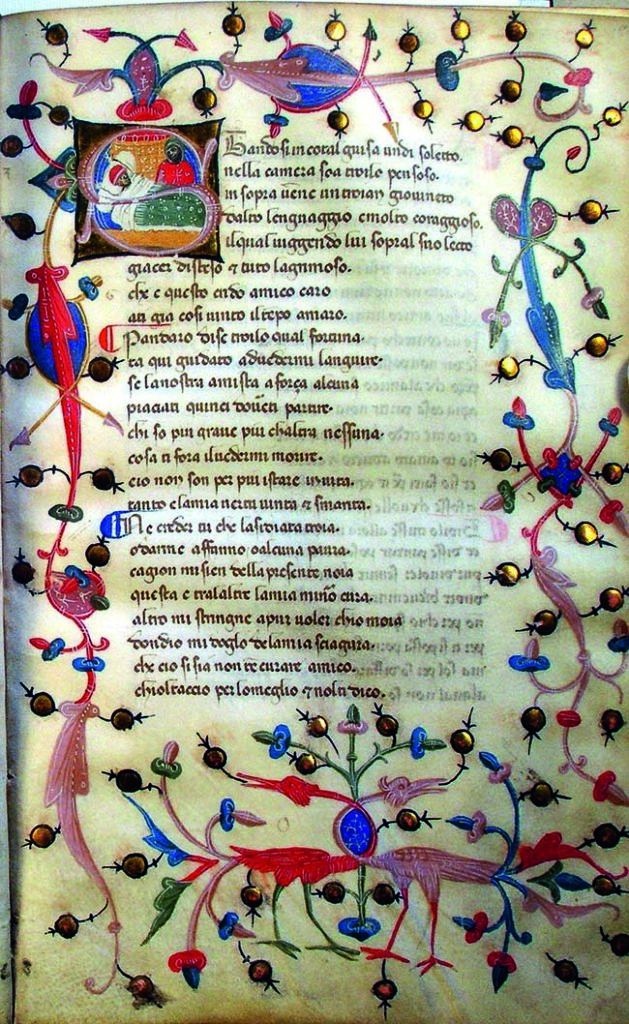 Standosi in cotal guisa un di soletto.
nella camera soa troilo pensoso.
in sopra uene un troian giouineto
dalto lengnaggio e molto coraggioso.
il qual ueggendo lui sopral suo lecto
giacer disteso & tuto lagrimoso.
che e questo crido amico caro
ati gia cosi uinto il tẽpo amaro.
Pandaro disse troilo qual fortuna.
ta qui guidato aduedermi languire.
se la nostra amista a força alcuna
piaciati quinci douerti partire.
chi so piu graue piu chaltra nessuna.
cosa ti fora iluedermi morire.
eio non son per piu istare inuita.
tanto e lamia uertu uinta & smarita.
Ne creder tu che lassediata troia.
o darme affanno o alcuna paura.
cagion misien della presente noia
questa e tralaltre la mia minor cura.
altro mi stringne apur uoler chio moia
dondio mi doglo dela mia sciagura.
che cio si sia non te curare amico.
chioltaccio per lo meglio & nolti dico.